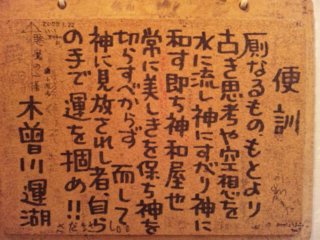 便訓
厠なるものもとより
古き思考や空想を
水に流し神にすがり神に
和す即ち神和屋也
常に美しきを保ち神を
切らすべからず 而して
神に見放されし者自ら
の手で運を掴め!!
木曽川遅湖